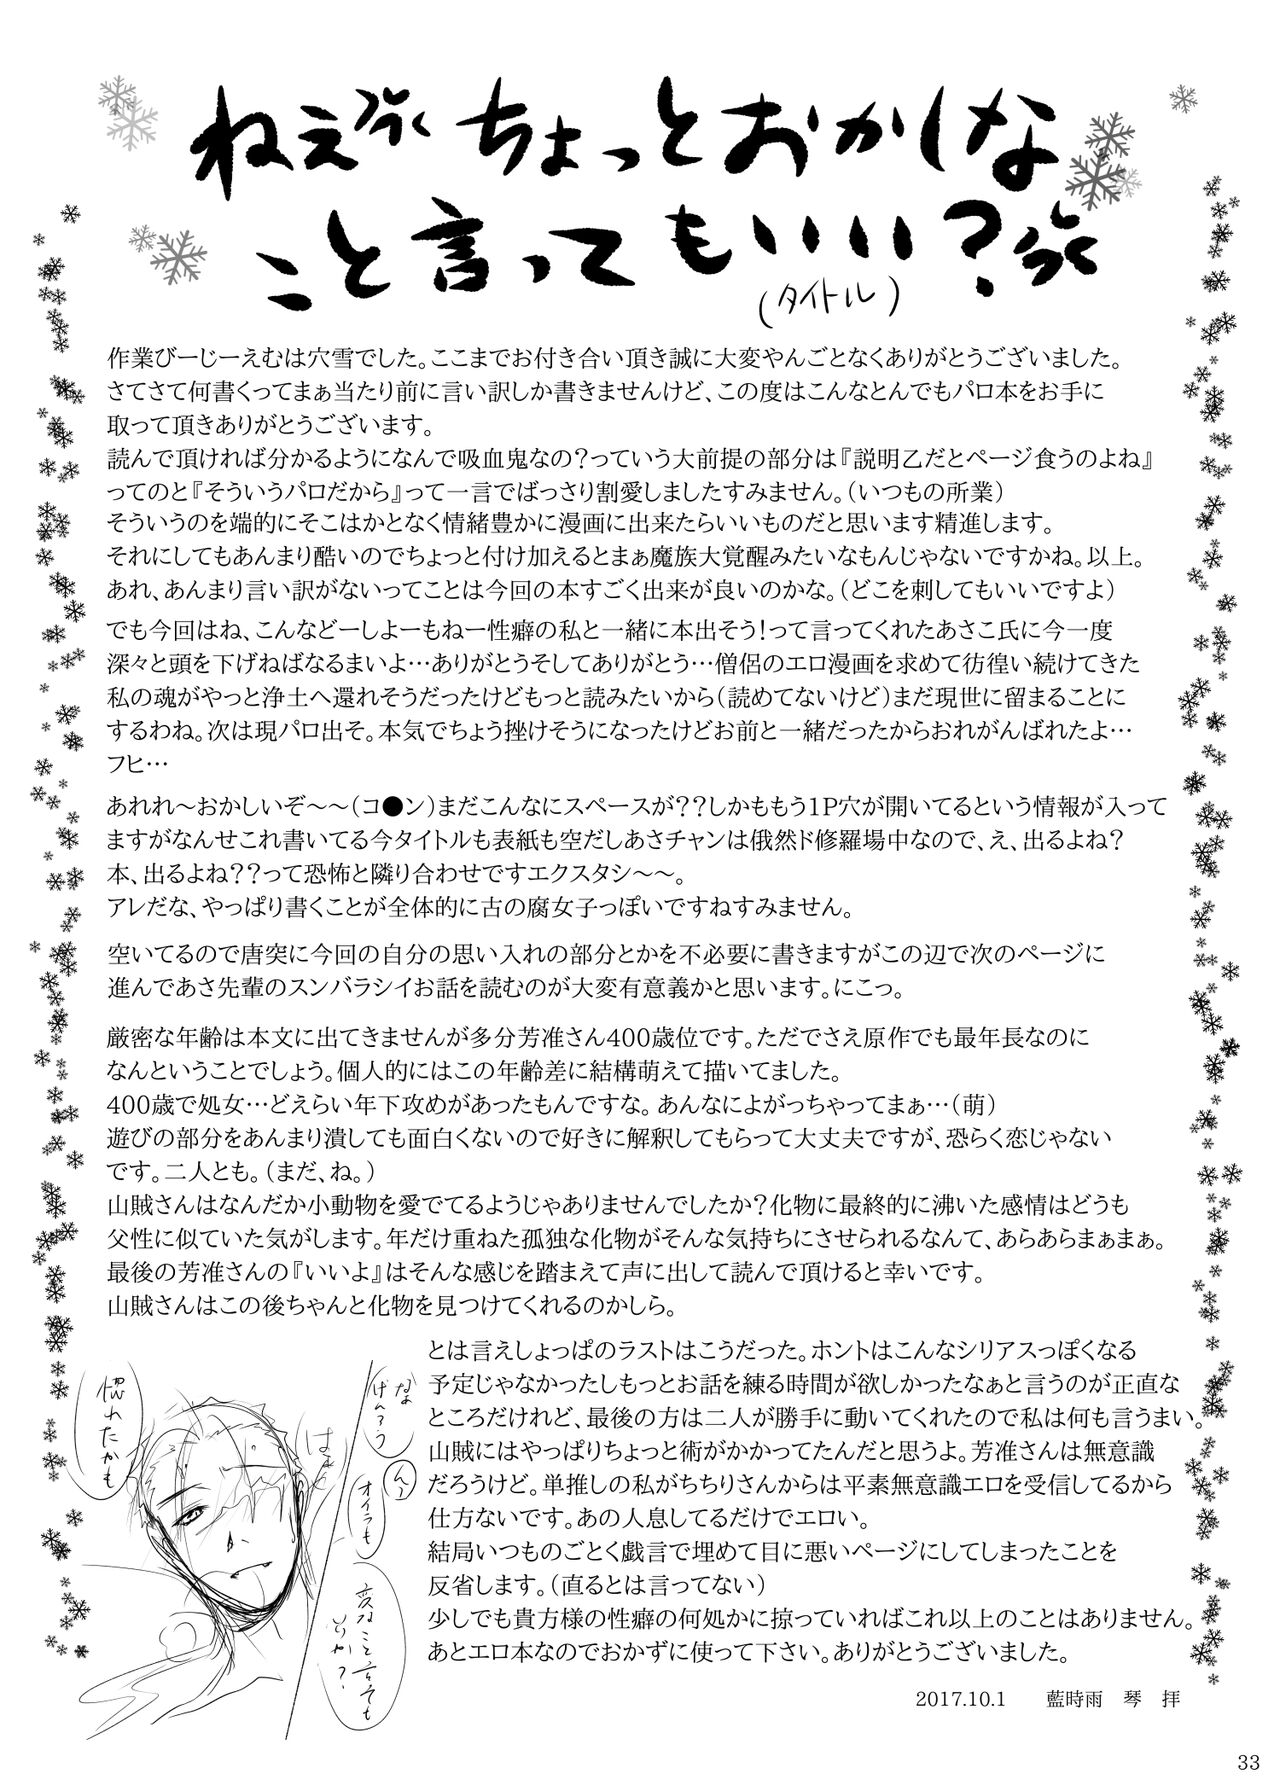 ねえ ちょっとおかしな
こと言ってもいい?
(タイトル)
作業びーじーえむは穴雪でした。ここまでお付き合い頂き誠に大変やんごとなくありがとうございました。
さてさて何書くってまぁ当たり前に言い訳しか書きませんけど、この度はこんなとんでもパロ本をお手に
取って頂きありがとうございます。
読んで頂ければ分かるようになんで吸血鬼なの?っていう大前提の部分は『説明乙だとページ食うのよね』
ってのと『そういうパロだから』って一言でばっさり割愛しましたすみません。(いつもの所業)
そういうのを端的にそこはかとなく情緒豊かに漫画に出来たらいいものだと思います精進します。
それにしてもあんまり酷いのでちょっと付け加えるとまぁ魔族大覚醒みたいなもんじゃないですかね。以上。
あれ、あんまり言い訳がないってことは今回の本すごく出来が良いのかな。(どこを刺してもいいですよ)
でも今回はね、こんなどーしよーもねー性癖の私と一緒に本出そう!って言ってくれたあさこ氏に今一度
深々と頭を下げねばなるまいよ…ありがとうそしてありがとう…僧侶のエロ漫画を求めて彷徨い続けてきた
私の魂がやっと浄土へ還れそうだったけどもっと読みたいから(読めてないけど)まだ現世に留まることに
するわね。次は現パロ出そ。本気でちょう挫けそうになったけどお前と一緒だったからおれがんばれたよ…
フヒ…
あれれ～おかしいぞ～～(コ●ン)まだこんなにスペースが??しかももう1P穴が開いてるという情報が入って
ますがなんせこれ書いてる今タイトルも表紙も空だしあさチャンは俄然ド修羅場中なので、え、出るよね?
本、出るよね??って恐怖と隣り合わせですエクスタシ～～。
アレだな、やっぱり書くことが全体的に古の腐女子っぽいですねすみません。
空いてるので唐突に今回の自分の思い入れの部分とかを不必要に書きますがこの辺で次のページに
進んであさ先輩のスンバラシイお話を読むのが大変有意義かと思います。にこっ。
厳密な年齢は本文に出てきませんが多分芳准さん400歳位です。ただでさえ原作でも最年長なのに
なんということでしょう。個人的にはこの年齢差に結構萌えて描いてました。
400歳で処女…どえらい年下攻めがあったもんですな。あんなによがっちゃってまぁ…(萌)
遊びの部分をあんまり潰しても面白くないので好きに解釈してもらって大丈夫ですが、恐らく恋じゃない
です。二人とも。(まだ、ね。)
山賊さんはなんだか小動物を愛でてるようじゃありませんでしたか?化物に最終的に沸いた感情はどうも
父性に似ていた気がします。年だけ重ねた孤独な化物がそんな気持ちにさせられるなんて、あらあらまぁまぁ。
最後の芳准さんの『いいよ』はそんな感じを踏まえて声に出して読んで頂けると幸いです。
山賊さんはこの後ちゃんと化物を見つけてくれるのかしら。
とは言えしょっぱのラストはこうだった。ホントはこんなシリアスっぽくなる
予定じゃなかったしもっとお話を練る時間が欲しかったなぁと言うのが正直な
ところだけれど、最後の方は二人が勝手に動いてくれたので私は何も言うまい。
山賊にはやっぱりちょっと術がかかってたんだと思うよ。芳准さんは無意識
だろうけど。単推しの私がちちりさんからは平素無意識エロを受信してるから
仕方ないです。あの人息してるだけでエロい。
結局いつものごとく戯言で埋めて目に悪いページにしてしまったことを
反省します。(直るとは言ってない)
少しでも貴方様の性癖の何処かに掠っていればこれ以上のことはありません。
あとエロ本なのでおかずに使って下さい。ありがとうございました。
オイラも
変なこと言ても
いいか?
惚れたかも
2017.10.1 藍時雨 琴 拝
33